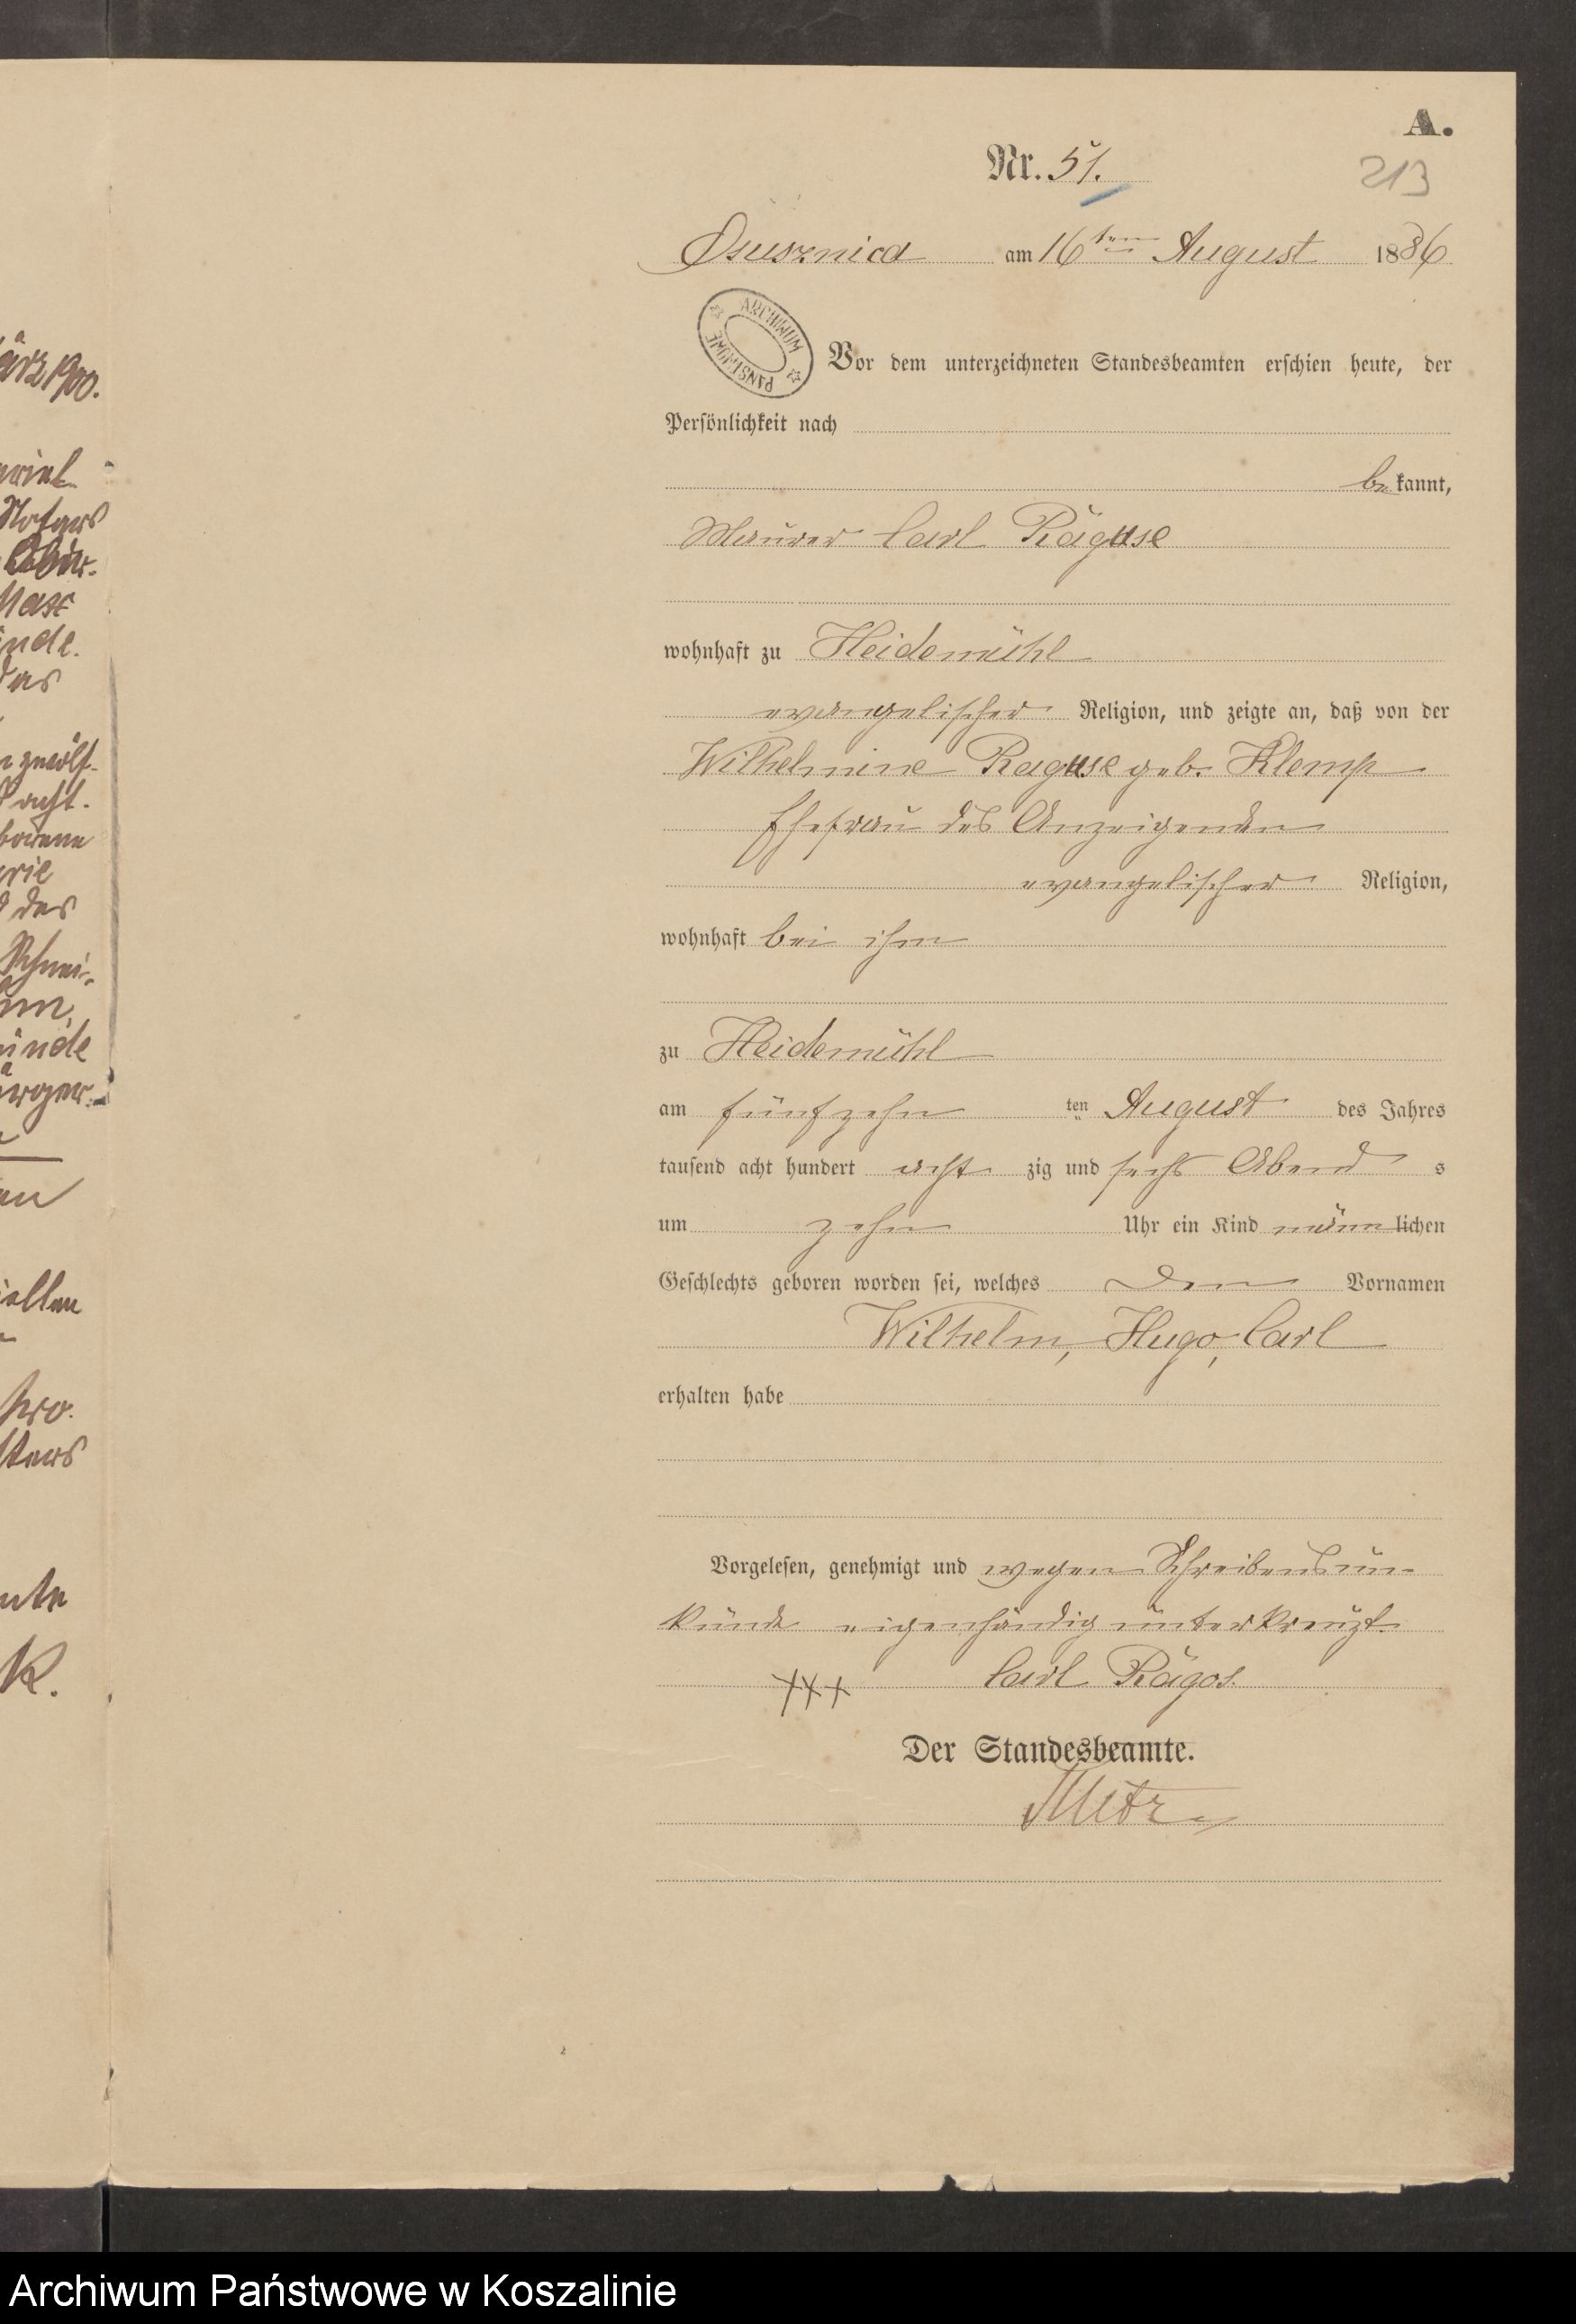 A.
Nr. 51.
213
Osusznica am 16ten August 1886
ARCHIWUM PAŃSTWOWE
Vor dem unterzeichneten Standesbeamten erschien heute, der
Persönlichkeit nach
bekannt,
Maurer Carl Räguse
wohnhaft zu Heidemühl
evangelischer Religion, und zeigte an, daß von der
Wilhelmine Raguse geb. Klemp
Ehefrau des Anzeigenden
evangelischer Religion,
wohnhaft bei ihm
zu Heidemühl
am fünfzehn ten August des Jahres
tausend acht hundert acht zig und sechs Abend s
um zehn Uhr ein Kind männlichen
Geschlechts geboren worden sei, welches den Vornamen
Wilhelm, Hugo, Carl
erhalten habe
Vorgelesen, genehmigt und wegen Schreibensun-
kunde eigenhändig unterkreuzt.
+++ Carl Rägos.
Der Standesbeamte.
ärz 1900.
Notars
das
zwölf-
acht.
borene
des
Schnei-
Archiwum Państwowe w Koszalinie